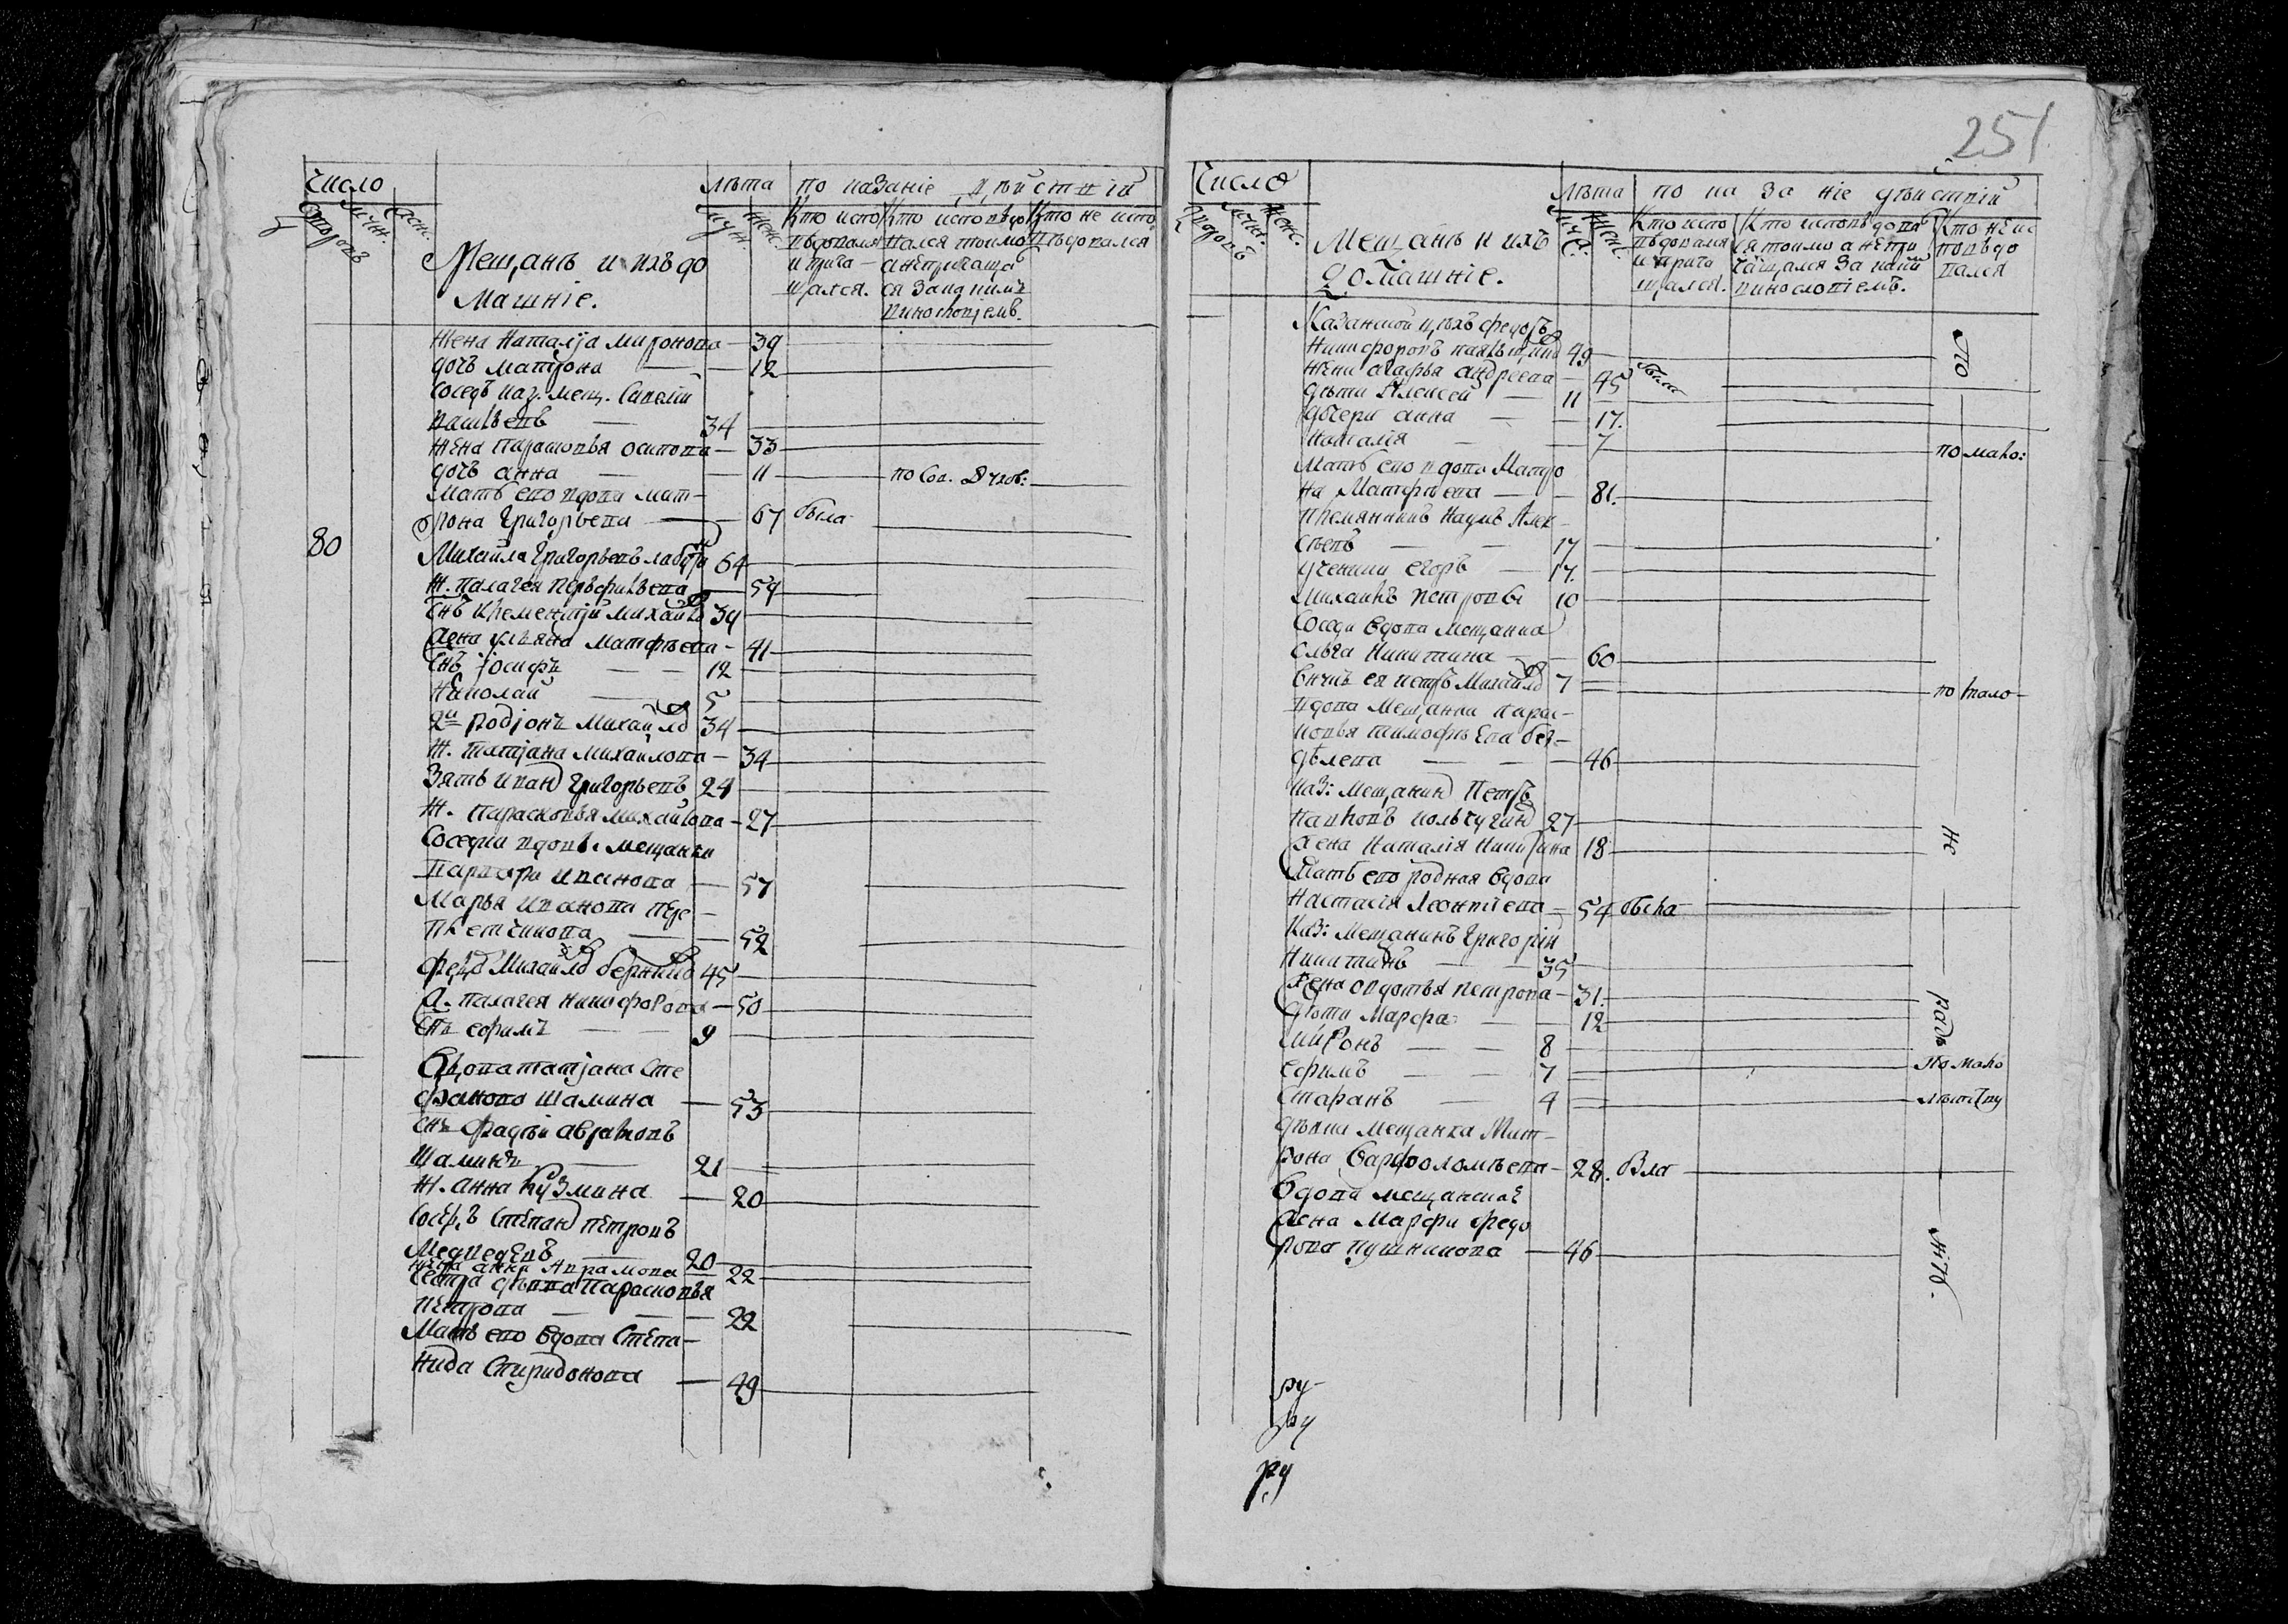 число
дворовъ
мужс.
женс.
Мещанъ и ихъ до
машніе.
лѣта
муж.
женс.
показаніе дѣйствій
Кто испо
вѣдовался
и прича
щался.
Кто исповѣдо
вался токмо
а непричаща
ся за каким
винословіемъ.
Кто не испо
вѣдовался
Жена Наталія Миронова — 39
дочь Матрона — 12
Сосѣдъ каз. мещ. Савелій
34
Жена Парасковья Осипова — 33
дочь Анна — 11
Мать его вдова Мат-
рона Григорьева — 67 была
80
Михайла Григорьевъ 64
Ж. Палагея 59
Снъ Климентій Михайлъ 39
Жена Ульяна Матфѣева — 41
Снъ Іосифъ — 12
Николай — 5
2й Родіонъ Михайлъ 34
Ж. Татіана Михайлова — 34
Зять Иванъ Григорьевъ 24
Ж. Парасковья Михайлова — 27
Соседки вдовы мещанки
Варвара Иванова — 57
Марья Иванова Пле-
52
Федръ Михайлъ 45
Ж. Палагея Никифорова — 50
Снъ Ефимъ — 9
Вдова Татіана Сте
фанова Шамина — 53
Снъ Фадѣй Аврамовъ
Шаминъ — 21
Ж. Анна Кузмина — 20
Сосѣдъ Степанъ Петровъ
Медведевъ — 20
Жена Анна Аврамова — 22
Сестра дѣвка Парасковья
Петрова — 22
Мать его вдова Степа-
нида Спиридонова — 49
251
Число
дворовъ
мужс.
женс.
Мещанъ и ихъ
домашніе.
Лѣта
муж.
женс.
показаніе дѣиствій
Кто испо
вѣдовался
и прича
щался.
Кто исповѣдова
ся токмо а непри
чащался за каким
виносповіемъ.
Кто не ис
повѣдо
вался
Казанской цѣхъ Федоръ
Никифоровъ 49
Жена Агафья Андреева — 45 была
дѣти Алексей — 11
дочери Анна — 17.
Наталія — 7
по мало:
Мать его вдова Матро
на Матфѣева — 81.
Племянникъ Наумъ Алек-
сѣевъ — 17
ученики Егоръ — 17.
Михаилъ Петровы 10
Соседи вдова мещанка
Ольга Никитина — 60
Внукъ ея Петръ Михайлъ 7
по мало-
Вдова мещанка Парас-
ковья Тимофѣева
46
каз: мещанинъ Петръ
27
Жена Наталія Никитина 18
Мать его родная вдова
Настасія Леонтіева — 54 была
каз: мещанинъ Григорій
Никитинъ — 35
Жена Овдотья Петрова — 31.
дѣти Марфа — 12
Миронъ — 8
Ефимъ — 7
по мало
Стафанъ — 4
лѣтству
дѣвка мещанка Мат-
рона Варфоломѣева — 28. Вла
вдова мещанская
жена Марфа Федо
рова Пушникова — 46
не
радъ
ру-
ру
ру